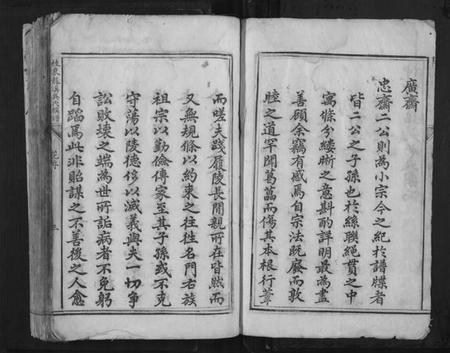 廣齋
忠齋二公則為小宗今之紀於譜牒者
皆二公之子孫也於絲聯繩貫之中
寓條分縷晰之意斟酌詳明最為盡
善顧余竊有感焉自宗法既廢而敦
睦之道罕聞葛藟而傷其本根行葦
而嗟夫踐履陵長間親所在皆然而
又無規條以約束之往往名門右族
祖宗以勤儉傳家至其子孫或不克
守蕩以陵德侈以滅義與夫一切爭
訟敗壞之端為世所詬病者不免躬
自蹈焉此非貽謀之不善後之人愈